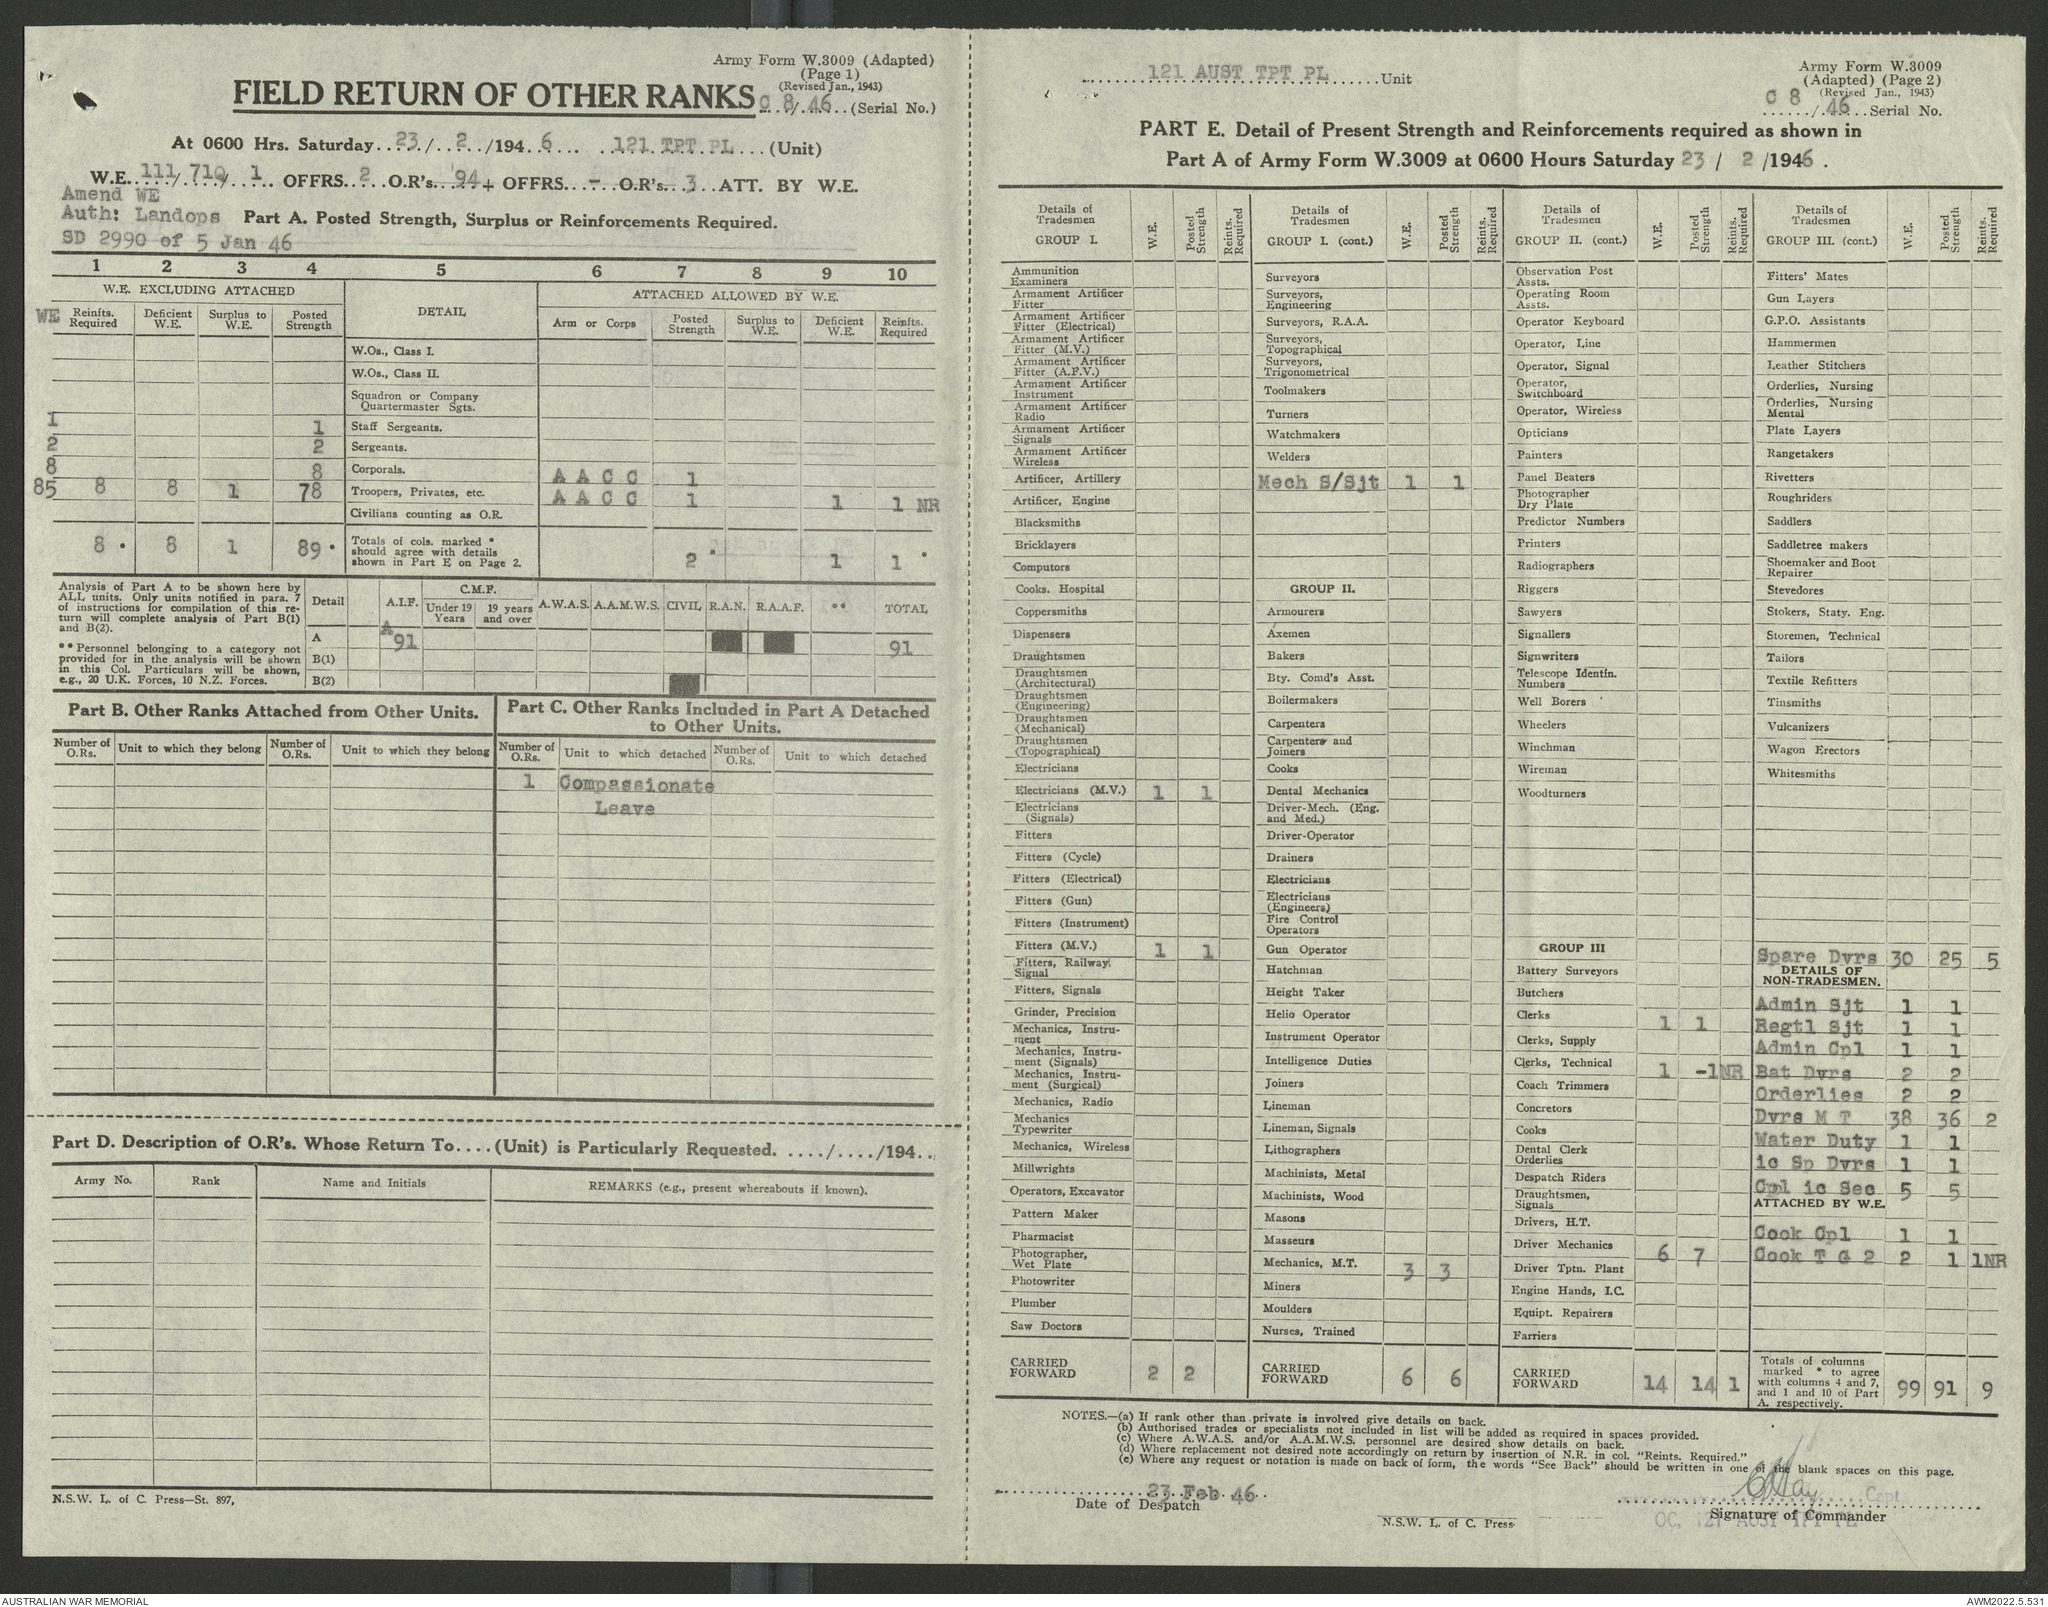 Army Form W.3009 (Adapted)
(Page 1)
(Revised Jan., 1943)
FIELD RETURN OF OTHER RANKS C 8/46 (Serial No.)
At 0600 Hrs. Saturday 23/2/1946 121 TPT PL (Unit)
W.E. 111/710/1 OFFRS 2 O.R's 94+ OFFRS - O.R's 3 ATT. BY W.E.
Amend WE
Auth: Landops
SD 2990 of 5 Jan 46
Part A. Posted Strength, Surplus or Reinforcements Required.
1 2 3 4 5 6 7 8 9 10
W.E. EXCLUDING ATTACHED DETAIL ATTACHED ALLOWED BY W.E.
WE Reinfts. Required Deficient W.E. Surplus to W.E. Posted Strength Arm or Corps Posted Strength Surplus to W.E. Deficient W.E. Reinfts. Required
W.Os., Class I.
W.Os., Class II.
Squadron or Company Quartermaster Sgts.
1 1 Staff Sergeants.
2 2 Sergeants.
8 8 Corporals. A A C C 1
85 8 8 1 78 Troopers, Privates, etc. A A C C 1 1 1 NR
Civilians counting as O.R.
8 * 8 1 89 * Totals of cols. marked * should agree with details shown in Part E on Page 2. 2 * 1 1 *
Analysis of Part A to be shown here by
ALL units. Only units notified in para. 7
of instructions for compilation of this re-
turn will complete analysis of Part B(1)
and B(2).
** Personnel belonging to a category not
provided for in the analysis will be shown
in this Col. Particulars will be shown,
e.g., 20 U.K. Forces, 10 N.Z. Forces.
Detail A.I.F. C.M.F. Under 19 Years 19 years and over A.W.A.S. A.A.M.W.S. CIVIL R.A.N. R.A.A.F. ** TOTAL
A A 91 91
B(1)
B(2)
Part B. Other Ranks Attached from Other Units.
Number of O.Rs. Unit to which they belong Number of O.Rs. Unit to which they belong
Part C. Other Ranks Included in Part A Detached
to Other Units.
Number of O.Rs. Unit to which detached Number of O.Rs. Unit to which detached
1 Compassionate
Leave
Part D. Description of O.R's. Whose Return To....(Unit) is Particularly Requested. ..../..../194..
Army No. Rank Name and Initials REMARKS (e.g., present whereabouts if known).
N.S.W. L. of C. Press—St. 897,
121 AUST TPT PL Unit
Army Form W.3009
(Adapted) (Page 2)
(Revised Jan., 1943)
C 8/46 Serial No.
PART E. Detail of Present Strength and Reinforcements required as shown in
Part A of Army Form W.3009 at 0600 Hours Saturday 23 / 2 /1946.
Details of Tradesmen GROUP I. W.E. Posted Strength Reints. Required
Ammunition Examiners
Armament Artificer Fitter
Armament Artificer Fitter (Electrical)
Armament Artificer Fitter (M.V.)
Armament Artificer Fitter (A.F.V.)
Armament Artificer Instrument
Armament Artificer Radio
Armament Artificer Signals
Armament Artificer Wireless
Artificer, Artillery
Artificer, Engine
Blacksmiths
Bricklayers
Computors
Cooks. Hospital
Coppersmiths
Dispensers
Draughtsmen
Draughtsmen (Architectural)
Draughtsmen (Engineering)
Draughtsmen (Mechanical)
Draughtsmen (Topographical)
Electricians
Electricians (M.V.) 1 1
Electricians (Signals)
Fitters
Fitters (Cycle)
Fitters (Electrical)
Fitters (Gun)
Fitters (Instrument)
Fitters (M.V.) 1 1
Fitters, Railway Signal
Fitters, Signals
Grinder, Precision
Mechanics, Instru-ment
Mechanics, Instru-ment (Signals)
Mechanics, Instru-ment (Surgical)
Mechanics, Radio
Mechanics Typewriter
Mechanics, Wireless
Millwrights
Operators, Excavator
Pattern Maker
Pharmacist
Photographer, Wet Plate
Photowriter
Plumber
Saw Doctors
CARRIED FORWARD 2 2
Details of Tradesmen GROUP I. (cont.) W.E. Posted Strength Reints. Required
Surveyors
Surveyors, Engineering
Surveyors, R.A.A.
Surveyors, Topographical
Surveyors, Trigonometrical
Toolmakers
Turners
Watchmakers
Welders
Mech S/Sjt 1 1
GROUP II.
Armourers
Axemen
Bakers
Bty. Comd's Asst.
Boilermakers
Carpenters
Carpenters and Joiners
Cooks
Dental Mechanics
Driver-Mech. (Eng. and Med.)
Driver-Operator
Drainers
Electricians
Electricians (Engineers)
Fire Control Operators
Gun Operator
Hatchman
Height Taker
Helio Operator
Instrument Operator
Intelligence Duties
Joiners
Lineman
Lineman, Signals
Lithographers
Machinists, Metal
Machinists, Wood
Masons
Masseurs
Mechanics, M.T. 3 3
Miners
Moulders
Nurses, Trained
CARRIED FORWARD 6 6
Details of Tradesmen GROUP II. (cont.) W.E. Posted Strength Reints. Required
Observation Post Assts.
Operating Room Assts.
Operator Keyboard
Operator, Line
Operator, Signal
Operator, Switchboard
Operator, Wireless
Opticians
Painters
Panel Beaters
Photographer Dry Plate
Predictor Numbers
Printers
Radiographers
Riggers
Sawyers
Signallers
Signwriters
Telescope Identfn. Numbers
Well Borers
Wheelers
Winchman
Wireman
Woodturners
GROUP III
Battery Surveyors
Butchers
Clerks 1 1
Clerks, Supply
Clerks, Technical 1 -1NR
Coach Trimmers
Concretors
Cooks
Dental Clerk Orderlies
Despatch Riders
Draughtsmen, Signals
Drivers, H.T.
Driver Mechanics 6 7
Driver Tptn. Plant
Engine Hands, I.C.
Equipt. Repairers
Farriers
CARRIED FORWARD 14 14 1
Details of Tradesmen GROUP III. (cont.) W.E. Posted Strength Reints. Required
Fitters' Mates
Gun Layers
G.P.O. Assistants
Hammermen
Leather Stitchers
Orderlies, Nursing
Orderlies, Nursing Mental
Plate Layers
Rangetakers
Rivetters
Roughriders
Saddlers
Saddletree makers
Shoemaker and Boot Repairer
Stevedores
Stokers, Staty. Eng.
Storemen, Technical
Tailors
Textile Refitters
Tinsmiths
Vulcanizers
Wagon Erectors
Whitesmiths
Spare Dvrs 30 25 5
DETAILS OF NON-TRADESMEN.
Admin Sjt 1 1
Regtl Sjt 1 1
Admin Cpl 1 1
Bat Dvrs 2 2
Orderlies 2 2
Dvrs M T 38 36 2
Water Duty 1 1
ic Sp Dvrs 1 1
Cpl ic Sec 5 5
ATTACHED BY W.E.
Cook Cpl 1 1
Cook T G 2 2 1 1NR
Totals of columns marked * to agree with columns 4 and 7, and 1 and 10 of Part A. respectively. 99 91 9
NOTES.—(a) If rank other than private is involved give details on back.
(b) Authorised trades or specialists not included in list will be added as required in spaces provided.
(c) Where A.W.A.S. and/or A.A.M.W.S. personnel are desired show details on back.
(d) Where replacement not desired note accordingly on return by insertion of N.R. in col. "Reints. Required."
(e) Where any request or notation is made on back of form, the words "See Back" should be written in one of the blank spaces on this page.
23 Feb 46
Date of Despatch
Capt
Signature of Commander
OC, 121 AUST TPT PL
N.S.W. L. of C. Press
AUSTRALIAN WAR MEMORIAL
AWM2022.5.531